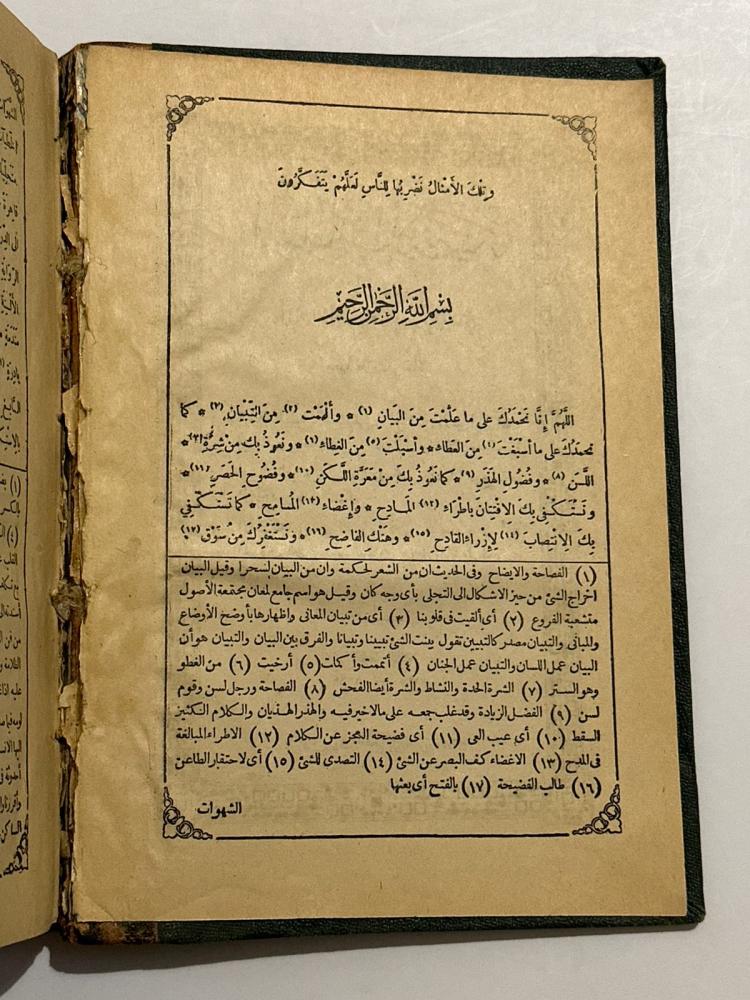 وَتِلْكَ الأَمْثَالُ نَضْرِبُهَا لِلنَّاسِ لَعَلَّهُمْ يَتَفَكَّرُونَ
بِسْمِ اللهِ الرَّحْمٰنِ الرَّحِيْمِ
اللَّهُمَّ إِنَّا نَحْمَدُكَ عَلى ما عَلَّمْتَ مِنَ البَيَانِ (١) * وألْهَمْتَ (٢) مِنَ التِّبْيَانِ (٣) * كَما
نَحْمَدُكَ عَلى ما أسْبَغْتَ (٤) مِنَ العَطَاءِ * وأسْبَلْتَ (٥) مِنَ الغِطَاءِ (٦) * ونَعُوذُ بِكَ مِنْ شِرَّةِ (٧) *
اللَّسَنِ (٨) * وفُضُولِ الهَذَرِ (٩) * كما نَعُوذُ بِكَ مِنْ مَعَرَّةِ اللَّكَنِ (١٠) * وفُضُوحِ الحَصَرِ (١١) *
ونَسْتَكْفِي بِكَ الِافْتِتانَ بِإِطْرَاءِ (١٢) المَادِحِ * وإِغْضَاءِ (١٣) المُسَامِحِ * كَما نَسْتَكْفِي
بِكَ الِانْتِصَابَ (١٤) لِإِزْرَاءِ القَادِحِ (١٥) * وهَتْكِ الفَاضِحِ (١٦) * ونَسْتَغْفِرُكَ مِنْ سَوْقِ (١٧)
(١) الفصاحة والايضاح وفى الحديث ان من الشعر لحكمة وان من البيان لسحرا وقيل البيان
اخراج الشئ من حيز الاشكال الى التجلى بأى وجه كان وقيل هو اسم جامع لمعان مجتمعة الأصول
متشعبة الفروع (٢) أى ألقيت فى قلوبنا (٣) أى من تبيان المعانى واظهارها بأوضح الأوضاع
والمبانى والتبيان مصدر كالتبيين تقول بينت الشئ تبيينا وتبيانا والفرق بين البيان والتبيان هو أن
البيان عمل اللسان والتبيان عمل الجنان (٤) أتممت وأكملت (٥) أرخيت (٦) من الغطو
وهو الستر (٧) الشرة الحدة والنشاط والشرة أيضا الفحش (٨) الفصاحة ورجل لسن وقوم
لسن (٩) الفضل الزيادة وقد غلب جمعه على مالا خير فيه والهذر الهذيان والكلام الكثير
السقط (١٠) أى عيب العى (١١) أى فضيحة العجز عن الكلام (١٢) الاطراء المبالغة
فى المدح (١٣) الاغضاء كف البصر عن الشئ (١٤) التصدى للشئ (١٥) أى لاحتقار الطاعن
(١٦) طالب الفضيحة (١٧) بالفتح أى بعثها
الشهوات